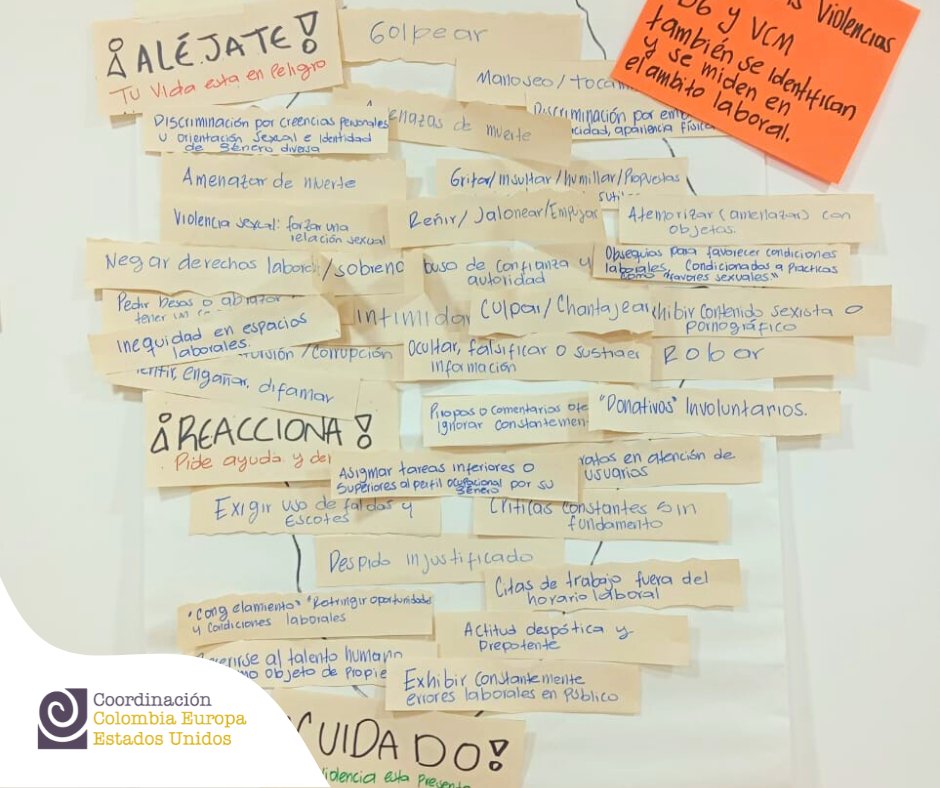 ¡ALÉJATE!
Tu Vida esta en Peligro
Golpear
Violencias
y VCM
también se identifican
y se miden en
el ambito laboral.
Manoseo/
Discriminación por creencias personales
u orientación sexual e identidad
de género diversa
de muerte
Discriminación por
apariencia física
Amenazar de muerte
Gritar/insultar/humillar/Propuestas
Violencia sexual: forzar una
relación sexual
Reñir/Jalonear/Empujar
Atemorizar (amenazar) con
objetas.
Negar derechos
/soborno
de confianza y
autoridad
Obsequios para favorecer condiciones
laborales, Condicionados a Practicas
como "favores sexuales"
Pedir besos o
tener un
intimidar
Culpar/Chantajear
Contenido sexista o
pornográfico
Inequidad en espacios
laborales.
/Corrupción
Ocultar, falsificar o sustraer
información
Robar
engañar, difamar
¡REACCIONA!
Pide ayuda y
Piropos o comentarios
ignorar
"Donativos" Involuntarios.
Asigmar tareas inferiores o
Superiores al perfil ocupacional por su
género
en atención de
usuarios
Exigir uso de faldas y
Escotes
Criticas constantes sin
fundamento
Despido injustificado
Citas de trabajo fuera del
horario laboral
"Congelamiento" "Retringir oportunidades
y condiciones laborales
Actitud despótica y
Prepotente
al talento humano
objeto de
Exhibir Constantemente
errores laborales en público
¡CUIDADO!
esta
Coordinación
Colombia Europa
Estados Unidos